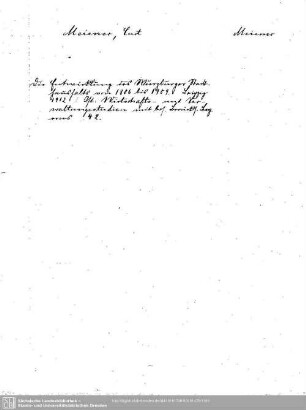 Meisner, Curt Meisner
Die Entwicklung des Würzburger Stadt-
haushalts vom 1806 bis 1909. Leipzig
1912 : Wirtschafts- und Ver-
waltungsstudien mit bes. Berücks. Bay-
erns 42.
Sächsische Landesbibliothek -
Staats- und Universitätsbibliothek Dresden